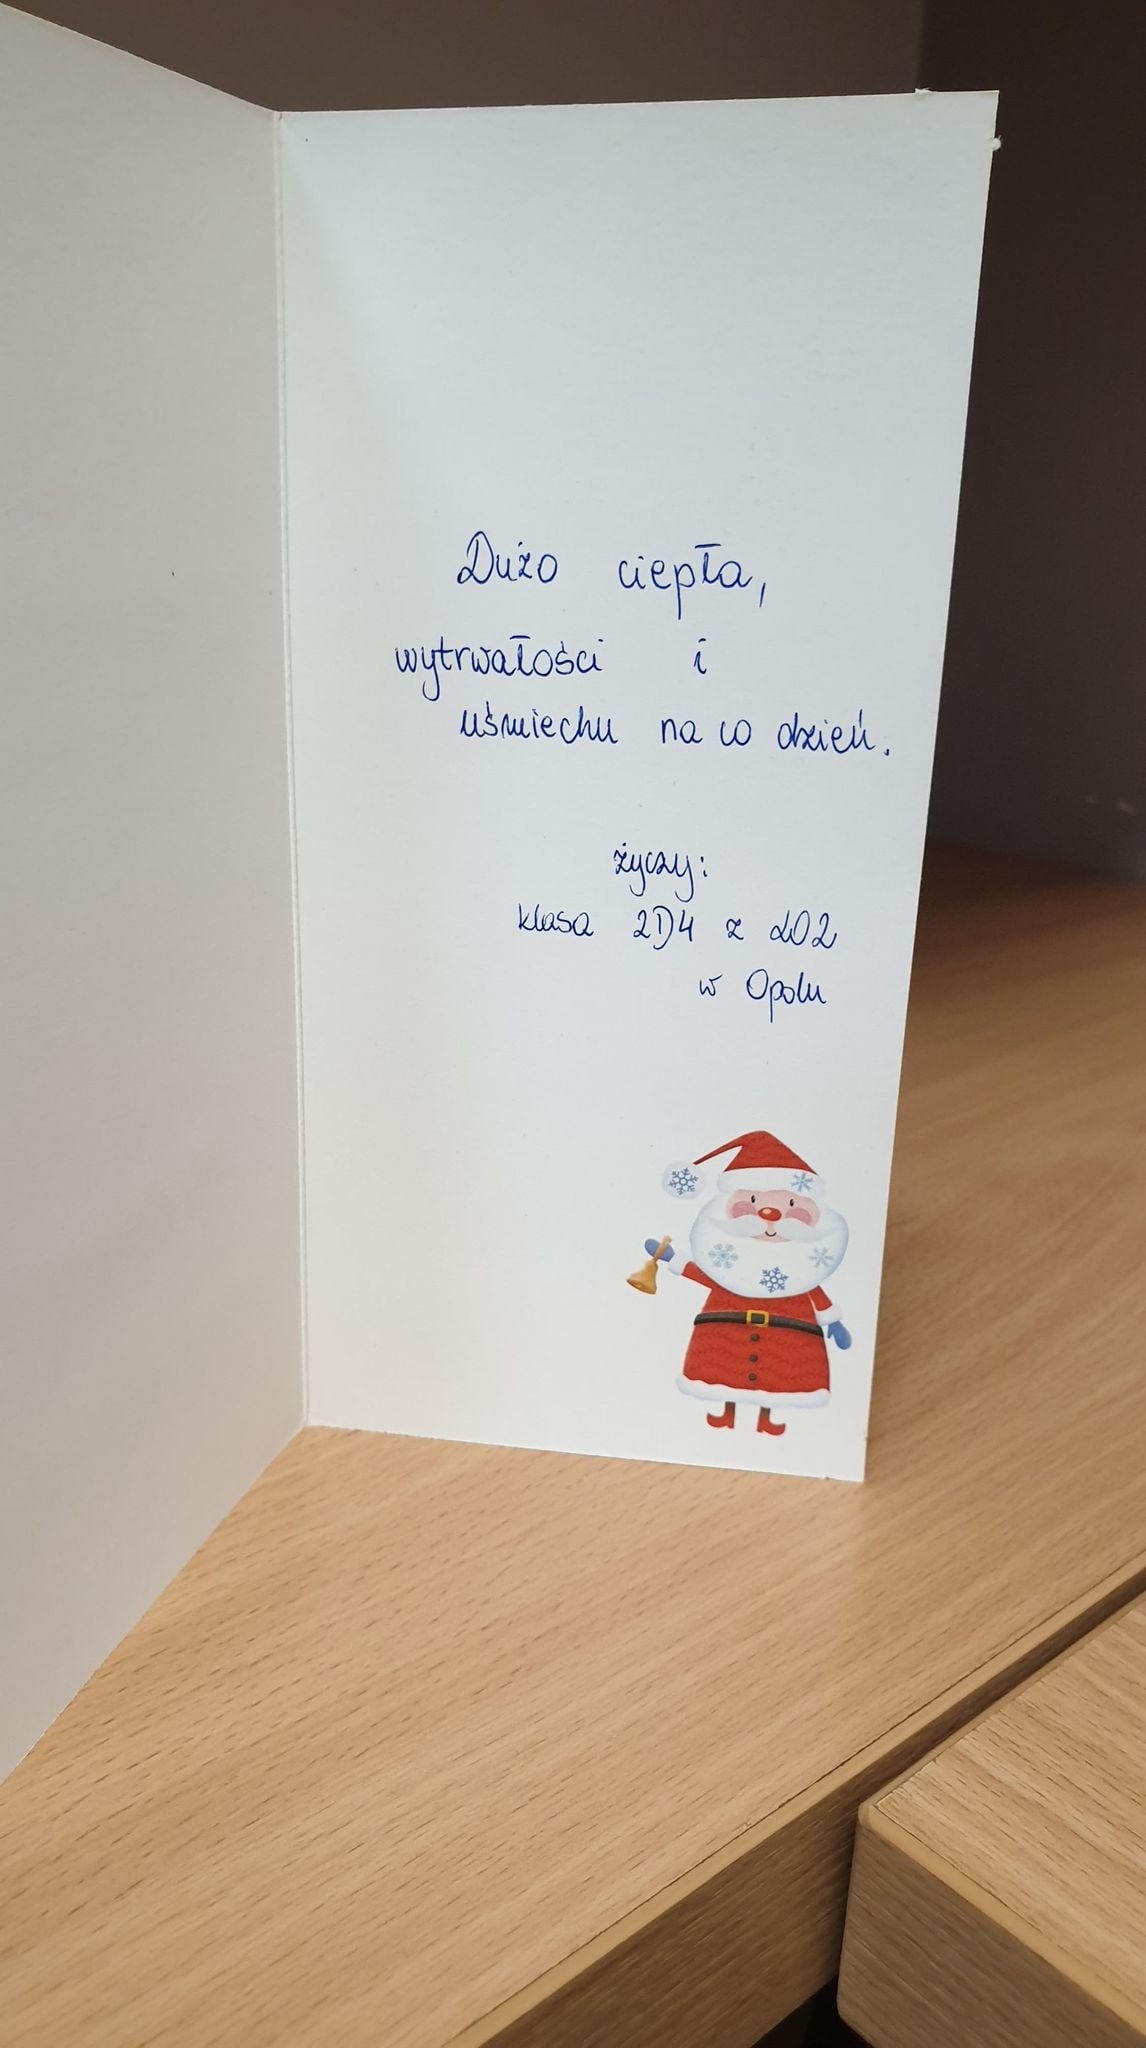 Dużo ciepła,
wytrwałości i
uśmiechu na co dzień.
życzy:
klasa 2D4 z LO2
w Opolu